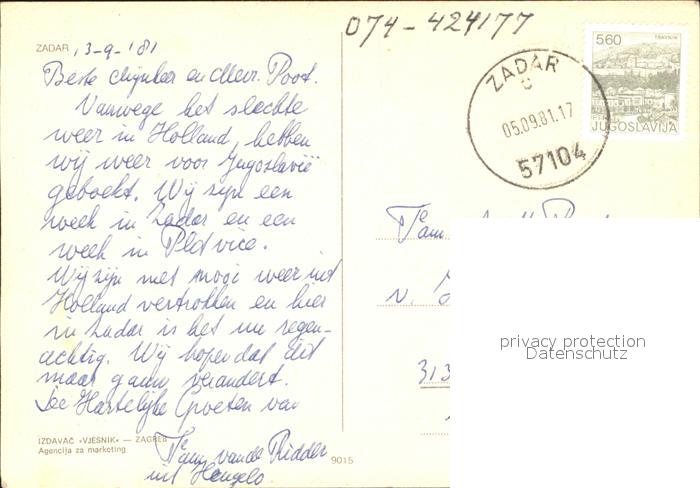 074-424177
ZADAR, 3-9-'81
Beste Mijnheer en Mevr. Poot.
Vanwege het slechte
weer in Holland, hebben
wij weer voor Jugoslavië
geboekt. Wij zijn een
week in Zadar en een
week in Plitvice.
Wij zijn met mooi weer uit
Holland vertrokken en hier
in Zadar is het nu regen-
achtig. Wij hopen dat dit
maar gauw verandert.
Hartelijke Groeten van
Fam. van de Ridder
uit Hengelo
IZDAVAČ «VJESNIK» — ZAGREB
Agencija za marketing
9015
ZADAR
05.09.81.17
57104
5.60
TRAVNIK
JUGOSLAVIJA
Fam
v.
313
privacy protection
Datenschutz